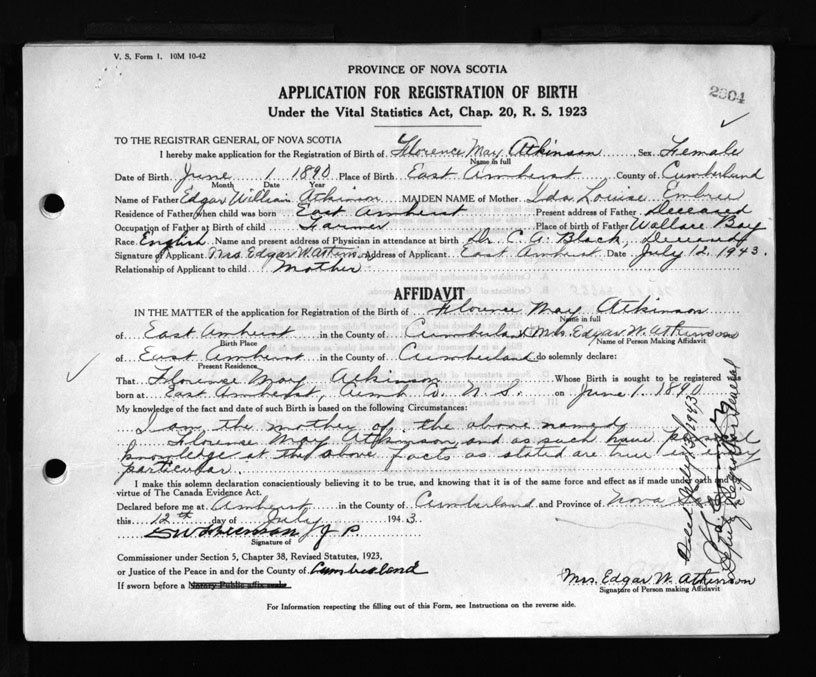 V. S. Form 1. 10M 10-42
PROVINCE OF NOVA SCOTIA
2904
APPLICATION FOR REGISTRATION OF BIRTH
Under the Vital Statistics Act, Chap. 20, R. S. 1923
TO THE REGISTRAR GENERAL OF NOVA SCOTIA
I hereby make application for the Registration of Birth of Florence May Atkinson Sex Female
Name in full
Date of Birth June 1 1890 Place of Birth East Amherst County of Cumberland
Month Date Year
Name of Father Edgar William Atkinson MAIDEN NAME of Mother Ida Louise Embree
Residence of Father when child was born East Amherst Present address of Father Deceased
Occupation of Father at Birth of child Farmer Place of birth of Father Wallace Bay
Race English Name and present address of Physician in attendance at birth Dr. C. A. Black,
Signature of Applicant Mrs. Edgar W. Atkinson Address of Applicant East Amherst Date July 12, 1943.
Relationship of Applicant to child Mother
AFFIDAVIT
IN THE MATTER of the application for Registration of the Birth of Florence May Atkinson
Name in full
of East Amherst in the County of Cumberland Mrs. Edgar W. Atkinson
Birth Place Name of Person Making Affidavit
of East Amherst in the County of Cumberland do solemnly declare:
Present Residence
That Florence May Atkinson Whose Birth is sought to be registered was
born at East Amherst, Cumb Co. N. S. on June 1. 1890
My knowledge of the fact and date of such Birth is based on the following Circumstances:
I am the mother of the above named
Florence May Atkinson and as such have personal
knowledge at the above facts as stated are true in every
particular.
I make this solemn declaration conscientiously believing it to be true, and knowing that it is of the same force and effect as if made under oath and
virtue of The Canada Evidence Act.
Declared before me at Amherst in the County of Cumberland and Province of Nova
this 12th day of July 1943
J P.
Signature of
Commissioner under Section 5, Chapter 38, Revised Statutes, 1923,
or Justice of the Peace in and for the County of Cumberland
If sworn before a Notary Public affix seal.
Mrs. Edgar W. Atkinson
Signature of Person making Affidavit
For Information respecting the filling out of this Form, see Instructions on the reverse side.
Deputy Registrar General